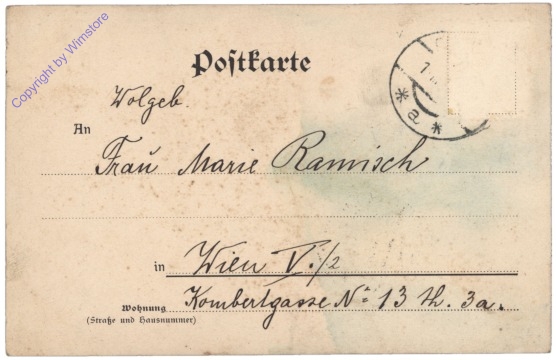 Copyright by Wimstore
Postkarte
Wolgeb.
An
Frau Marie Ramisch
in Wien V./2
Wohnung
(Straße und Hausnummer)
Kombertgasse No 13 th. 3a.
1
* a *